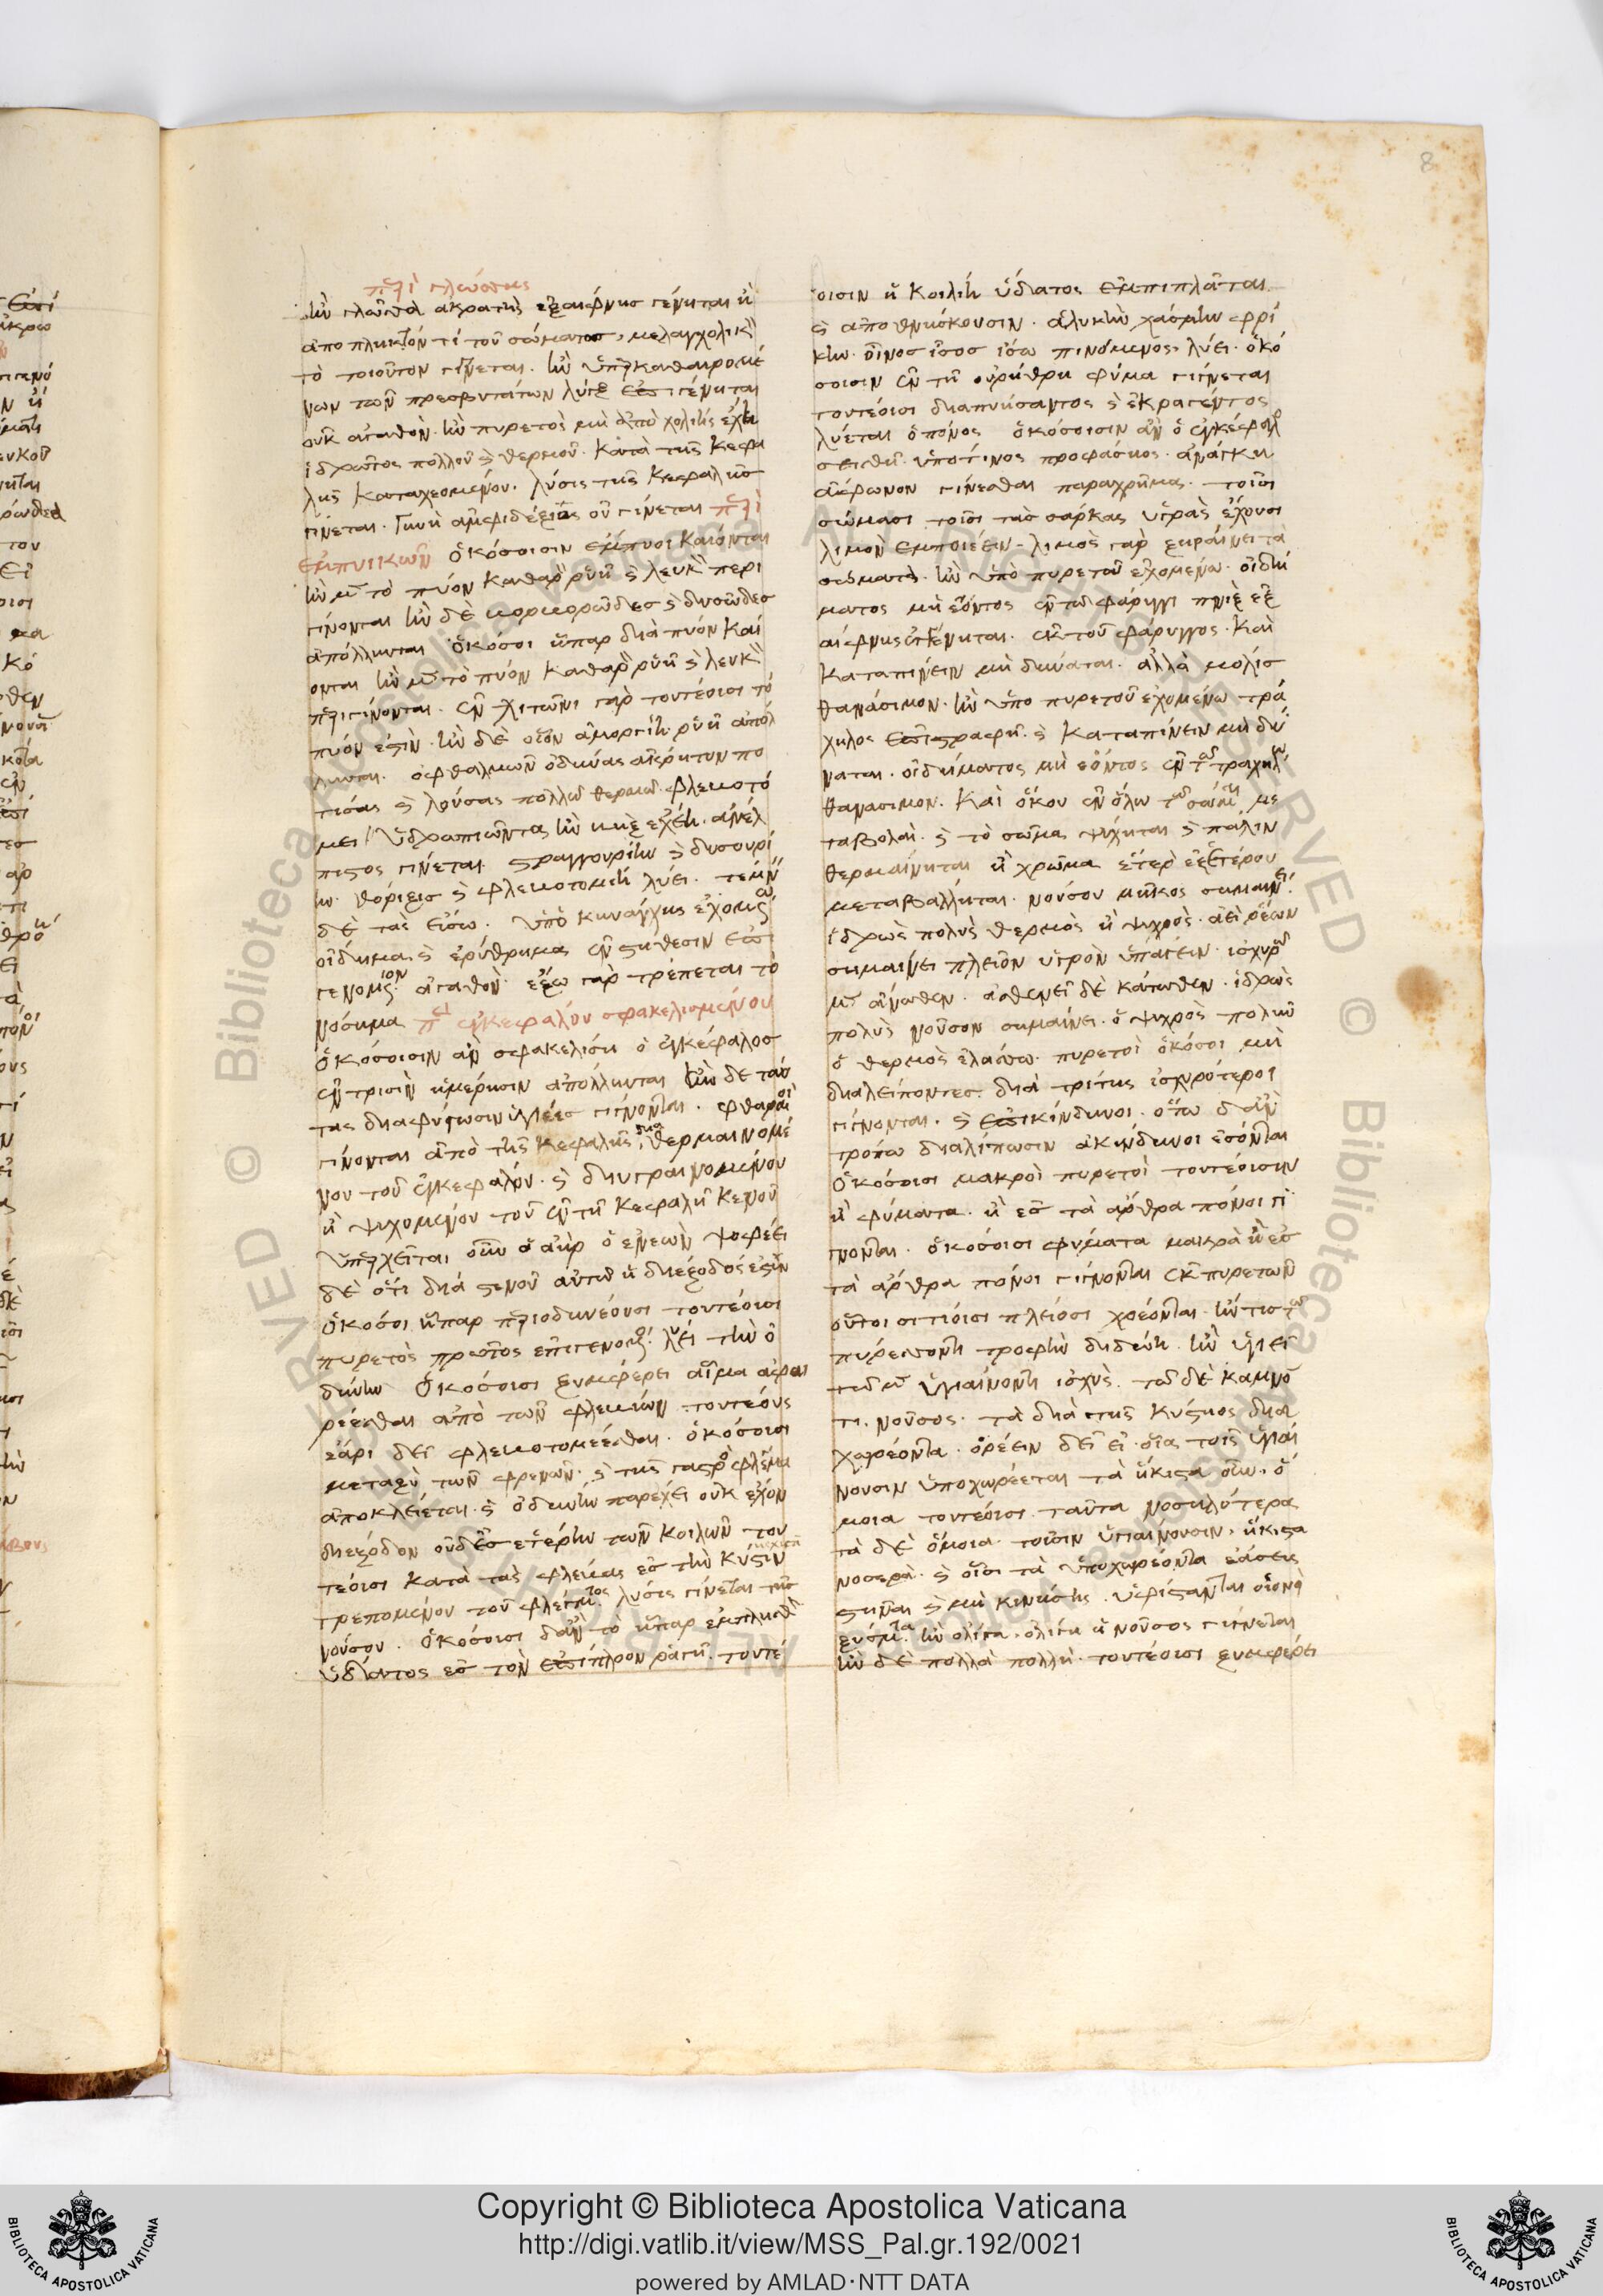 8
περὶ γλώσσης
ἢν γλῶσσα ἀκρατὴς ἐξαίφνης γένηται ἢ
ἀπόπληκτόν τι τοῦ σώματος, μελαγχολικὸν
τὸ τοιοῦτον γίνεται. ἢν ὑπερκαθαιρομέ
νων τῶν πρεσβυτάτων λὺγξ ἐπιγένηται
οὐκ ἀγαθόν. ἢν πυρετὸς μὴ ἀπὸ χολῆς ἔχῃ
ἱδρῶτος πολλοῦ καὶ θερμοῦ. κατὰ τῆς κεφα
λῆς καταχεομένου. λύσις τῆς κεφαλῆς
γίνεται. γυνὴ ἀμφιδέξιος οὐ γίνεται περὶ
ἐμπυικῶν ὁκόσοισιν ἔμπυοι καίονται
ἢν μὲν τὸ πύον καθαρὸν ῥυῇ καὶ λευκὸν περι
γίνονται ἢν δὲ βορβορῶδες καὶ δυσῶδες
ἀπόλλυνται ὁκόσοι ἧπαρ διὰ πύον καί
ονται ἢν μὲν τὸ πύον καθαρὸν ῥυῇ καὶ λευκὸν
περιγίνονται. ἐν χιτῶνι γὰρ τουτέοισι τὸ
πύον ἐστίν. ἢν δὲ οἷον ἀμοργίη ῥυῇ ἀπόλ
λυνται. ὀφθαλμῶν ὀδύνας ἀκρήτον πο
τίσας καὶ λούσας πολλῷ θερμῷ φλεβοτό
μει ὑδρωπιῶντας ἢν βὴξ ἔχῃ. ἀνέλ
πιστος γίνεται. στραγγουρίην καὶ δυσουρί
ην. θώρηξις καὶ φλεβοτομίη λύει. τέμνειν
δὲ τὰς εἴσω. ὑπὸ κυνάγχης ἐχομένῳ
οἴδημα καὶ ἐρύθημα ἐν στήθεσιν ἐπι
γενόμενον ἀγαθόν. ἔξω γὰρ τρέπεται τὸ
νόσημα περὶ ἐγκεφάλου σφακελισμένου
ὁκόσοισιν ἂν σφακελίσῃ ὁ ἐγκέφαλος
ἐν τρισὶν ἡμέρῃσιν ἀπόλλυνται ἢν δὲ ταύ
τας διαφύγωσιν ὑγιέες γίνονται. φθαρμοὶ
γίνονται ἀπὸ τῆς κεφαλῆς διαθερμαινομέ
νου τοῦ ἐγκεφάλου. καὶ διυγραινομένου
ἢ ψυχομένου τοῦ ἐν τῇ κεφαλῇ κενοῦ
ὑπερχεῖται οὖν ὁ ἀὴρ ὁ ἐνεὼν ψοφέει
δὲ ὅτι διὰ στενοῦ αὐτῷ ἡ διέξοδός ἐστιν
ὁκόσοι ἧπαρ περιοδυνέουσι τουτέοισι
πυρετὸς πρῶτος ἐπιγενόμενος λύει τὴν ὀ
δύνην ὁκόσοισι ξυμφέρει αἷμα ἀφαι
ρέεσθαι ἀπὸ τῶν φλεβῶν τουτέους
ἔαρι δεῖ φλεβοτομέεσθαι. ὁκόσοισι
μεταξὺ τῶν φρενῶν. καὶ τῆς γαστρὸς φλέγμα
ἀποκλείεται. καὶ ὀδύνην παρέχει οὐκ ἔχον
διέξοδον οὐδὲ ἐς ἑτέρην τῶν κοιλιῶν του
τέοισι κατὰ τὰς φλέβας ἐς τὴν κύστιν
τρεπομένου τοῦ φλέγματος λύσις γίνεται τῆς
νούσου. ὁκόσοισι δ᾽ ἂν τὸ ἧπαρ ἐμπλησθὲν
ὕδατος ἐς τὸν ἐπίπλοον ῥαγῇ. τουτέ
οισιν ἡ κοιλίη ὕδατος ἐμπιπλᾶται
καὶ ἀποθνήσκουσιν. ἀλύκην χάσμην φρί
κην. οἶνος ἴσος ἴσῳ πινόμενος λύει. ὁκό
σοισιν ἐν τῇ οὐρήθρῃ φῦμα γίγνεται
τουτέοισι διαπυήσαντος καὶ ἐκραγέντος
λύεται ὁ πόνος ὁκόσοισιν ἂν ὁ ἐγκέφαλος
σεισθῇ. ὑπό τινος προφάσιος. ἀνάγκη
ἄφωνον γίνεσθαι παραχρῆμα. τοῖσι
σώμασι τοῖσι τὰς σάρκας ὑγρὰς ἔχουσι
λιμὸν ἐμποιέειν. λιμὸς γὰρ ξηραίνει τὰ
σώματα. ἢν ὑπὸ πυρετοῦ ἐχομένῳ. οἰδή
ματος μὴ ἐόντος ἐν τῷ φάρυγγι πνὶξ ἐξ
αίφνης γένηται. ἐκ τοῦ φάρυγγος. καὶ
καταπίνειν μὴ δύναται. ἀλλὰ μόλις
θανάσιμον. ἢν ὑπὸ πυρετοῦ ἐχομένῳ τρά
χηλος ἐπιστραφῇ. καὶ καταπίνειν μὴ δύ
ναται. οἰδήματος μὴ ἐόντος ἐν τῷ τραχήλῳ
θανάσιμον. καὶ ὅκου ἐν ὅλῳ τῷ σώματι με
ταβολαί. καὶ τὸ σῶμα ψύχηται καὶ πάλιν
θερμαίνηται ἢ χρῶμα ἕτερον ἐξ ἑτέρου
μεταβάλληται. νούσου μῆκος σημαίνει.
ἱδρὼς πολὺς θερμὸς ἢ ψυχρὸς. ἀεὶ ῥέων
σημαίνει πλεῖον ὑγρὸν ὑπάγειν. ἰσχυρῷ
μὲν ἄνωθεν. ἀσθενεῖ δὲ κάτωθεν. ἱδρὼς
πολὺς νοῦσον σημαίνει. ὁ ψυχρὸς πολλὴν
ὁ θερμὸς ἐλάσσω. πυρετοὶ ὁκόσοι μὴ
διαλείποντες. διὰ τρίτης ἰσχυρότεροι
γίγνονται. καὶ ἐπικίνδυνοι. ὅτῳ δ᾽ ἂν
τρόπῳ διαλίπωσιν ἀκίνδυνοι ἔσονται
ὁκόσοισι μακροὶ πυρετοὶ τουτέοισιν
ἢ φύματα. ἢ ἐς τὰ ἄρθρα πόνοι γί
γνονται. ὁκόσοισι φύματα μακρὰ ἢ ἐς
τὰ ἄρθρα πόνοι γίγνονται ἐκ πυρετῶν
οὗτοι σιτίοισι πλείοσι χρέονται. ἤν τις τῷ
πυρέσσοντι τροφὴν διδῷ. ἣν ὑγιεῖ
τῷ μὲν ὑγιαίνοντι ἰσχύς. τῷ δὲ κάμνο
τι. νοῦσος. τὰ διὰ τῆς κύστιος δια
χωρέοντα. ὁρέειν δεῖ εἰ οἷα τοῖς ὑγιαί
νουσιν ὑποχωρέεται τὰ ἥκιστα οὖν. ὅ
μοια τουτέοισι ταῦτα νοσηλότερα
τὰ δὲ ὅμοια τοῖσιν ὑγιαίνουσιν. ἥκιστα
νοσερά. καὶ οἷσι τὰ ὑποχωρέοντα ἐάσῃς
στῆναι καὶ μὴ κινήσῃς. ὑφίστανται οἱονεὶ
ξύσματα. ἢν ὀλίγα. ὀλίγη ἡ νοῦσος γίγνεται
ἢν δὲ πολλὰ πολλή. τουτέοισι ξυμφέρει
Copyright © Biblioteca Apostolica Vaticana
http://digi.vatlib.it/view/MSS_Pal.gr.192/0021
powered by AMLAD·NTT DATA
BIBLIOTECA APOSTOLICA VATICANA
BIBLIOTECA APOSTOLICA VATICANA